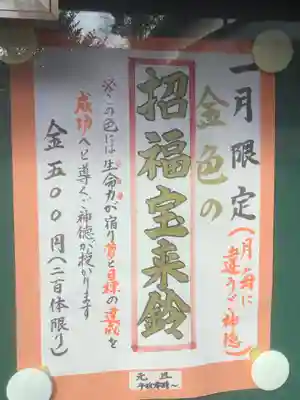 一月限定
(月毎に
違うご神徳)
金色の
招福宝来鈴
※この色には生命力が宿り夢と目標の達成を
成功へと導くご神徳が授かります
金五〇〇円(二百体限り)
元旦
午前零時~